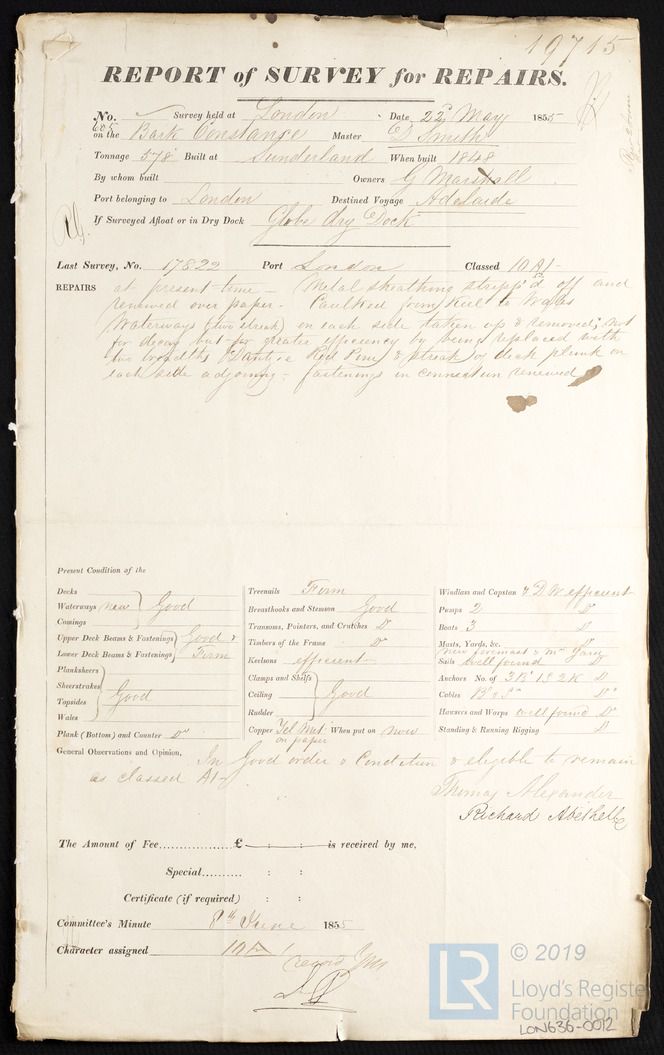 19715
REPORT of SURVEY for REPAIRS.
No. Survey held at London Date 22d May 1855
605
on the Bark Constance Master E D Smith
Tonnage 578 Built at Sunderland When built 1848
By whom built Owners G Marshall
Port belonging to London Destined Voyage Adelaide
If Surveyed Afloat or in Dry Dock Globe dry Dock
Last Survey, No. 17822 Port London Classed 10 A1
REPAIRS at present time - Metal sheathing stripp'd off and
renewed over paper - Caulked from Keel to Wales
Waterways (two streak) on each side taken up & removed; not
for decay but for greater efficiency by being replaced with
two breadths of Red Pine & streak of deck plank on
each side adjoining - fastenings in connection renewed
Present Condition of the
Decks
Waterways new Good
Comings
Upper Deck Beams & Fastenings Good &
Lower Deck Beams & Fastenings Firm
Planksheers
Sheerstrakes
Topsides Good
Wales
Plank (Bottom) and Counter Do
Treenails Firm
Breasthooks and Stemson Good
Transoms, Pointers, and Crutches Do
Timbers of the Frame Do
Keelsons efficient
Clamps and Shelfs
Ceiling Good
Rudder
Copper Yel Met. When put on now
on paper
Windlass and Capstan & D W efficient
Pumps 2 Do
Boats 3 Do
Masts, Yards, &c. Do
New foremast & Mn Yard
Sails well found Do
Anchors No. of 3 B 1 S 2 K Do
Cables Do
Hawsers and Warps well found Do
Standing & Running Rigging Do
General Observations and Opinion, In Good order & Condition & eligible to remain
as classed A1
Thomas Alexander
Richard Abethell
The Amount of Fee £ : : is received by me,
Special : :
Certificate (if required) : :
Committee's Minute 8th June 1855
Character assigned 10A1
record YM
© 2019
LR Lloyd's Register
Foundation
LON636-0012